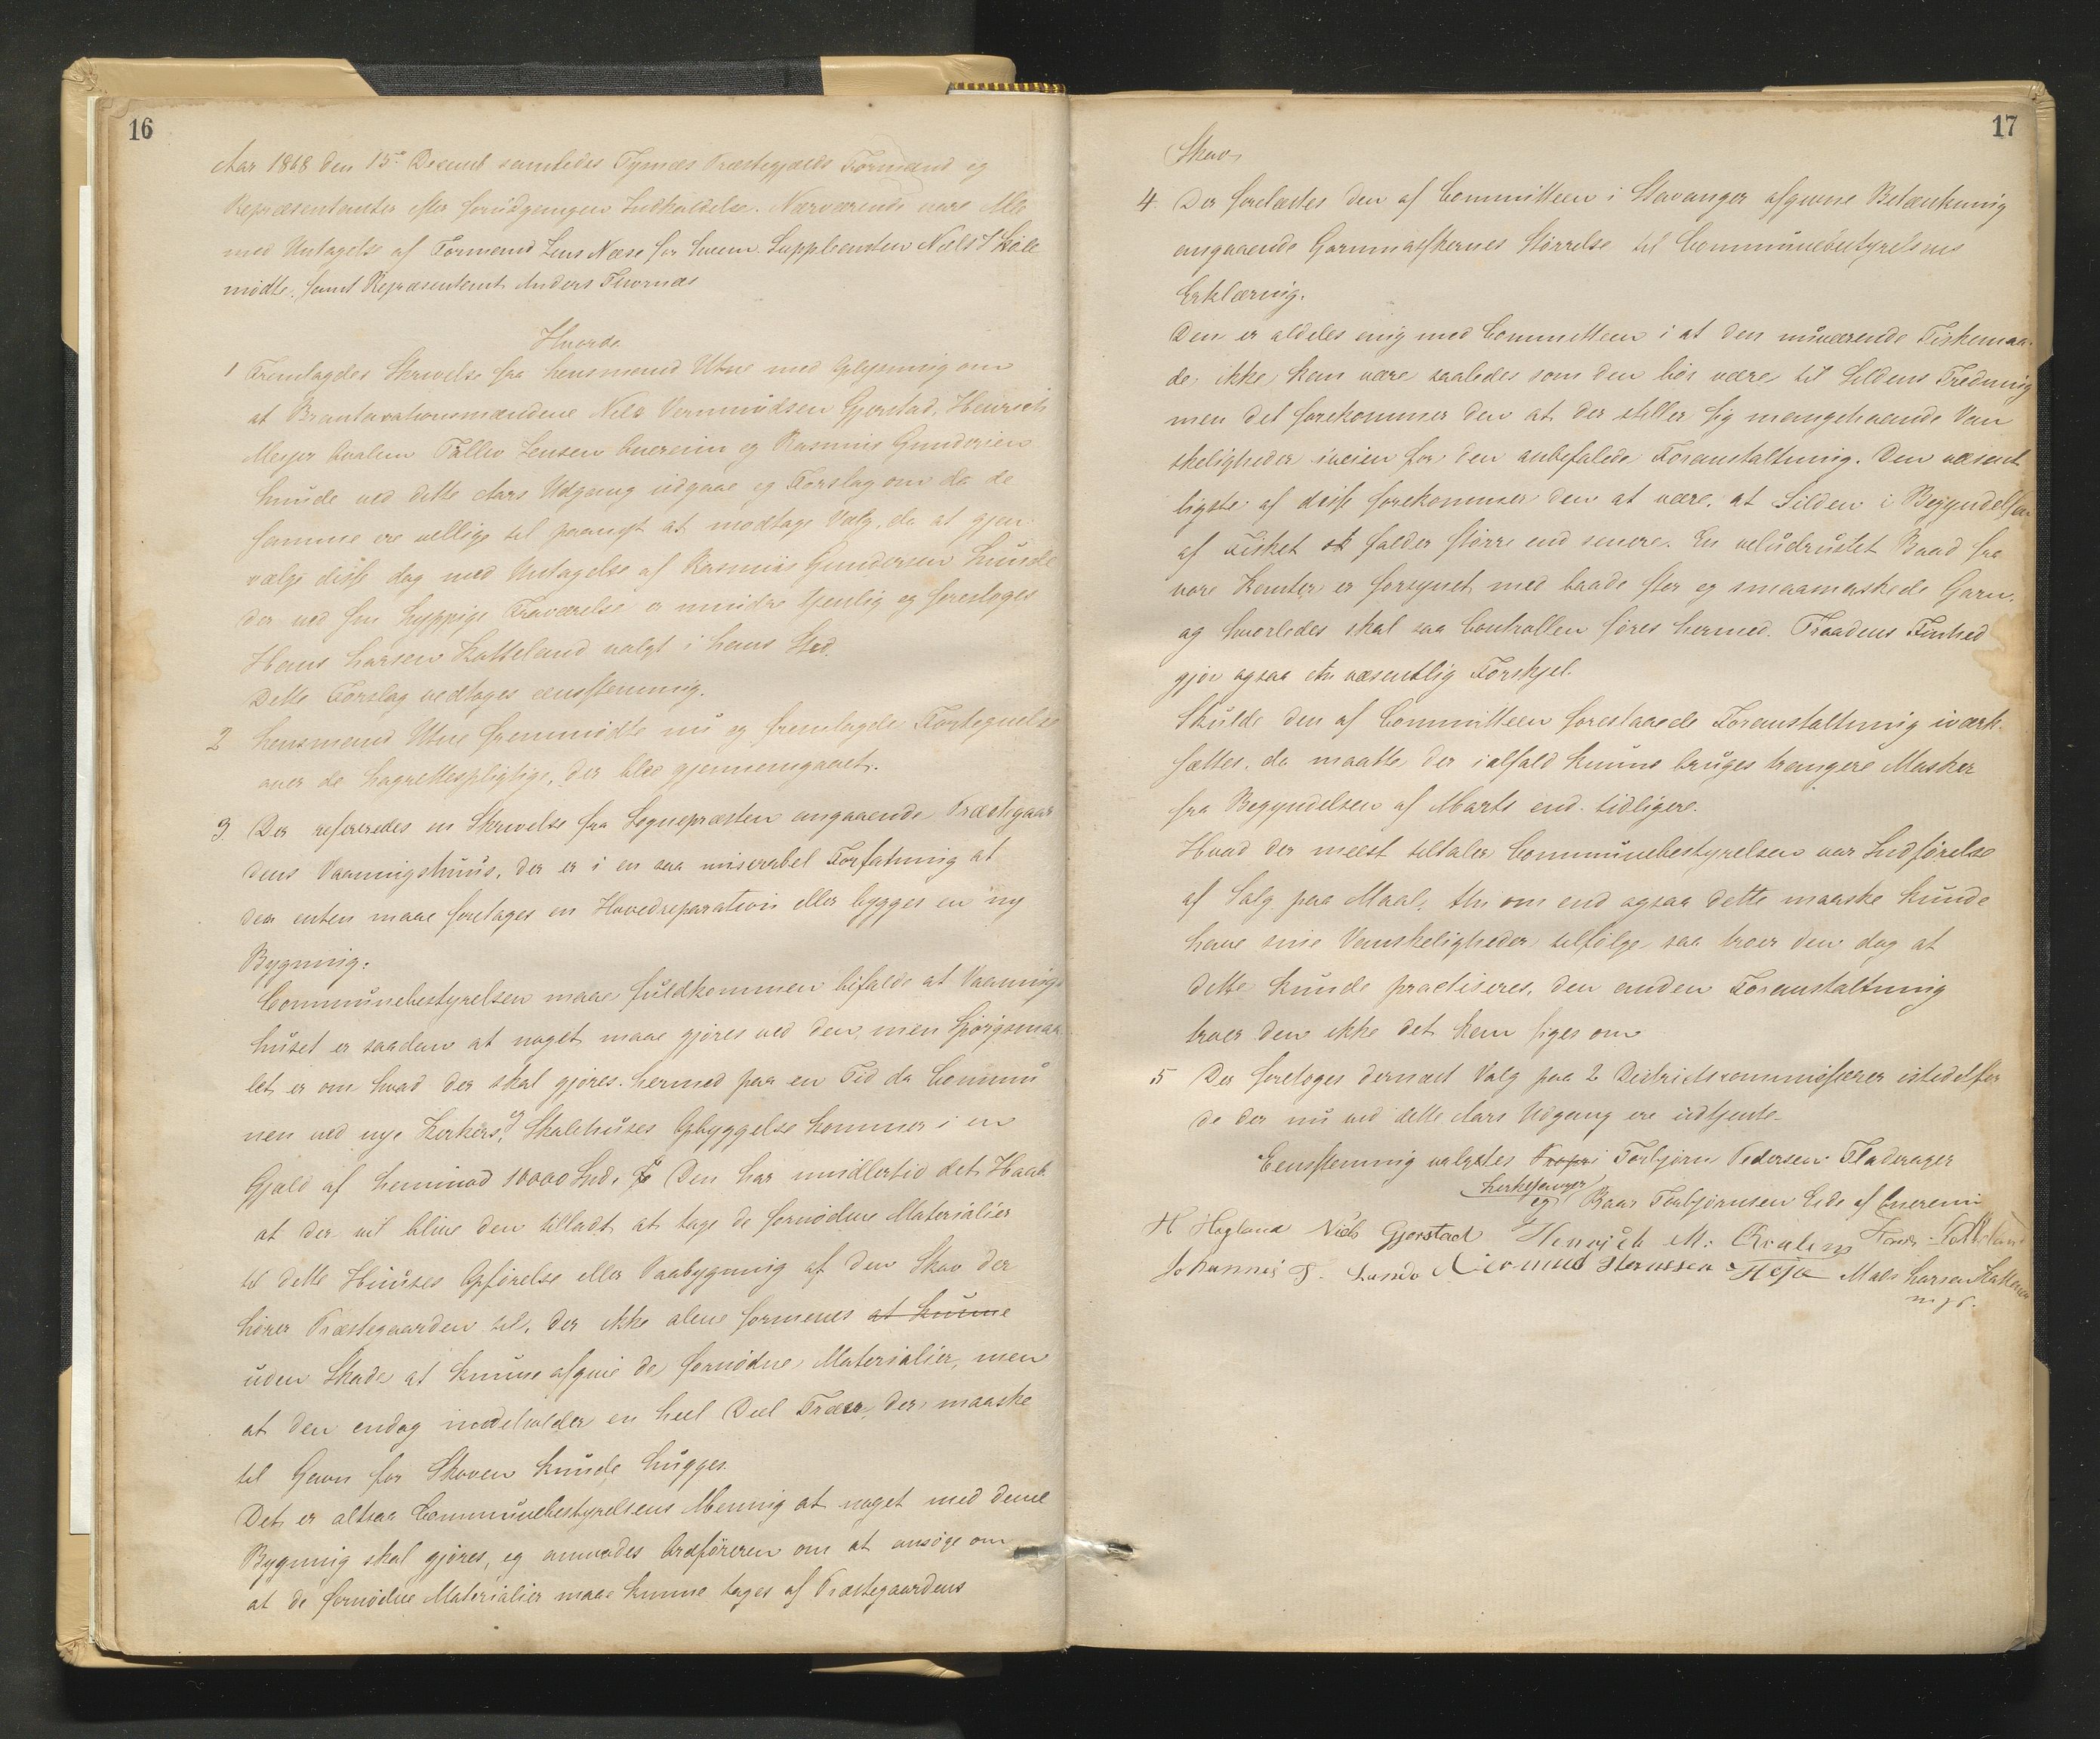 16
Aar 1868 den 15de Decemb samledes Tysnæs Præstegjælds Formænd og
Repræsentanter efter forudgangen Indkaldelse. Nærværende vare Alle
med Untagelse af Formand Lars Næse for hvem Suppleanten Niels T Høie
mødte, samt Repræsentant Anders Thornæs
Hvorda
1 Fremlagdes Skrivelse fra Lensmand Utne med Oplysning om
at Brantaxationsmændene Nils Vermundsen Gjerstad, Henrich
Meyer Qvalem Tollev Jensen Qverein og Rasmus Gundersen
Lunde ved dette Aars Udgang udgaae og Forslag om da de
samme ere villige til paanyt at modtage Valg, da at gjen
vælge disse dog med Untagelse af Rasmus Gundersen Lunde
der ved sin hyppige Fraværelse er mindre tjenlig og foresloges
Hans Larsen Katteland valgt i hans Sted.
Dette Forslag vedtoges eensstemmig.
2 Lensmand Utne fremmødte nu og fremlagde Fortegnelse
over de Lagrettespligtige, der blev gjennemgaaet.
3 Der refereredes en Skrivelse fra Sognepræsten angaaende Præstegaar
dens Vaaningshuus, der er i en saa miserabel Forfatning at
der enten maae foretages en Hovedreparation eller bygges en ny
Bygning.
Communebestyrelsen maae fuldkommen bifalde at Vaanings
huset er saadan at noget maae gjøres ved den, men Spørgsmaa
let er om hvad der skal gjøres hermed paa en Tid da Commu
nen ved nye Kirkers og Skolehuses Opbyggelse kommer i en
Gjæld af henimod 10000 Spd. Den har imidlertid det Haab
at der vil blive den tilladt at tage de fornødne Materialier
til dette Huuses Opførelse eller Paabygning af den Skov der
hører Præstegaarden til, der ikke alene formenes at kunne
uden Skade at kunne afgive de fornødne Materialier, men
at den endog indeholder en heel Deel Træer, der maaske
til Gavn for Skoven kunde hugges.
Det er altsaa Communebestyrelsens Mening at noget med denne
Bygning skal gjøres, og anmodes Ordføreren om at ansøge om
at de fornødne Materialier maae kunne tages af Præstegaardens
17
Skov.
4. Der forelædes den af Committeen i Stavanger afgivne Betænkning
angaaende Garnmaskernes Størrelse til Communebestyrelsens
Erklæring.
Den er aldeles enig med Committeen i at den nuværende Fiskemaa
de, ikke kan være saaledes som den bør være til Sildens Fredning
men det forekommer den at der stiller sig mangehaande Van
skeligheder iveien for den anbefalede Foranstaltning. Den væsent
ligste af disse forekommer den at være, at Silden i Begyndelsen
af Fisket falder større end senere. En veludrustet Baad fra
vore Kanter er forsynet med baade stor og smaamaskede Garn,
og hvorledes skal saa Controllen føres hermed. Traadens Finhed
gjør ogsaa en væsentlig Forskjel.
Skulde den af Committeen foreslaaede Foranstaltning iværk
sættes, da maatte der ialfald kunne bruges trangere Masker
fra Begyndelsen af Marts end tidligere.
Hvad der meest tiltaler Communebestyrelsen var Indførelse
af Salg paa Maal, thi om end ogsaa dette maaske kunde
have sine Vanskeligheder tilfølge saa troer den dog at
dette kunde practiseres, den anden Foranstaltning
troer den ikke det kan siges om
5 Der foretoges dernæst Valg paa 2 Districtscommissærer istedetfor
de der nu ved dette Aars Udgang ere udtjente.
Eensstemmig valgtes Torbjørn Pedersen Fladerager
Kirkesanger
og Baar Torbjørnsen Eide af Qverein
H Hagland Niels Gjerstad Henrich M: Qvalem
Johannes T. Sando Vermund Stenersen Høie Mads Larsen
m. p. P.